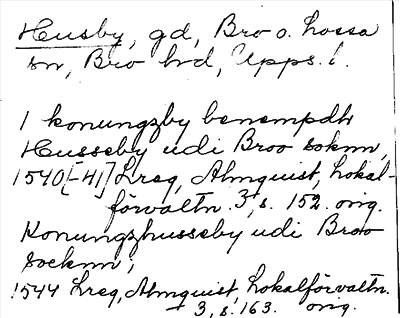 Husby, gd, Bro o. Lossa
sn, Bro hd, Upps. l.
1 konungzby benempdh
Husseby udi Broo soknn,
1540[-41] Lreg, Almquist, Lokal-
förvaltn. 3, s. 152. orig.
Konungzhusseby udi Broo
socknn;
1544 Lreg, Almquist, Lokalförvaltn.
3, s. 163. orig.